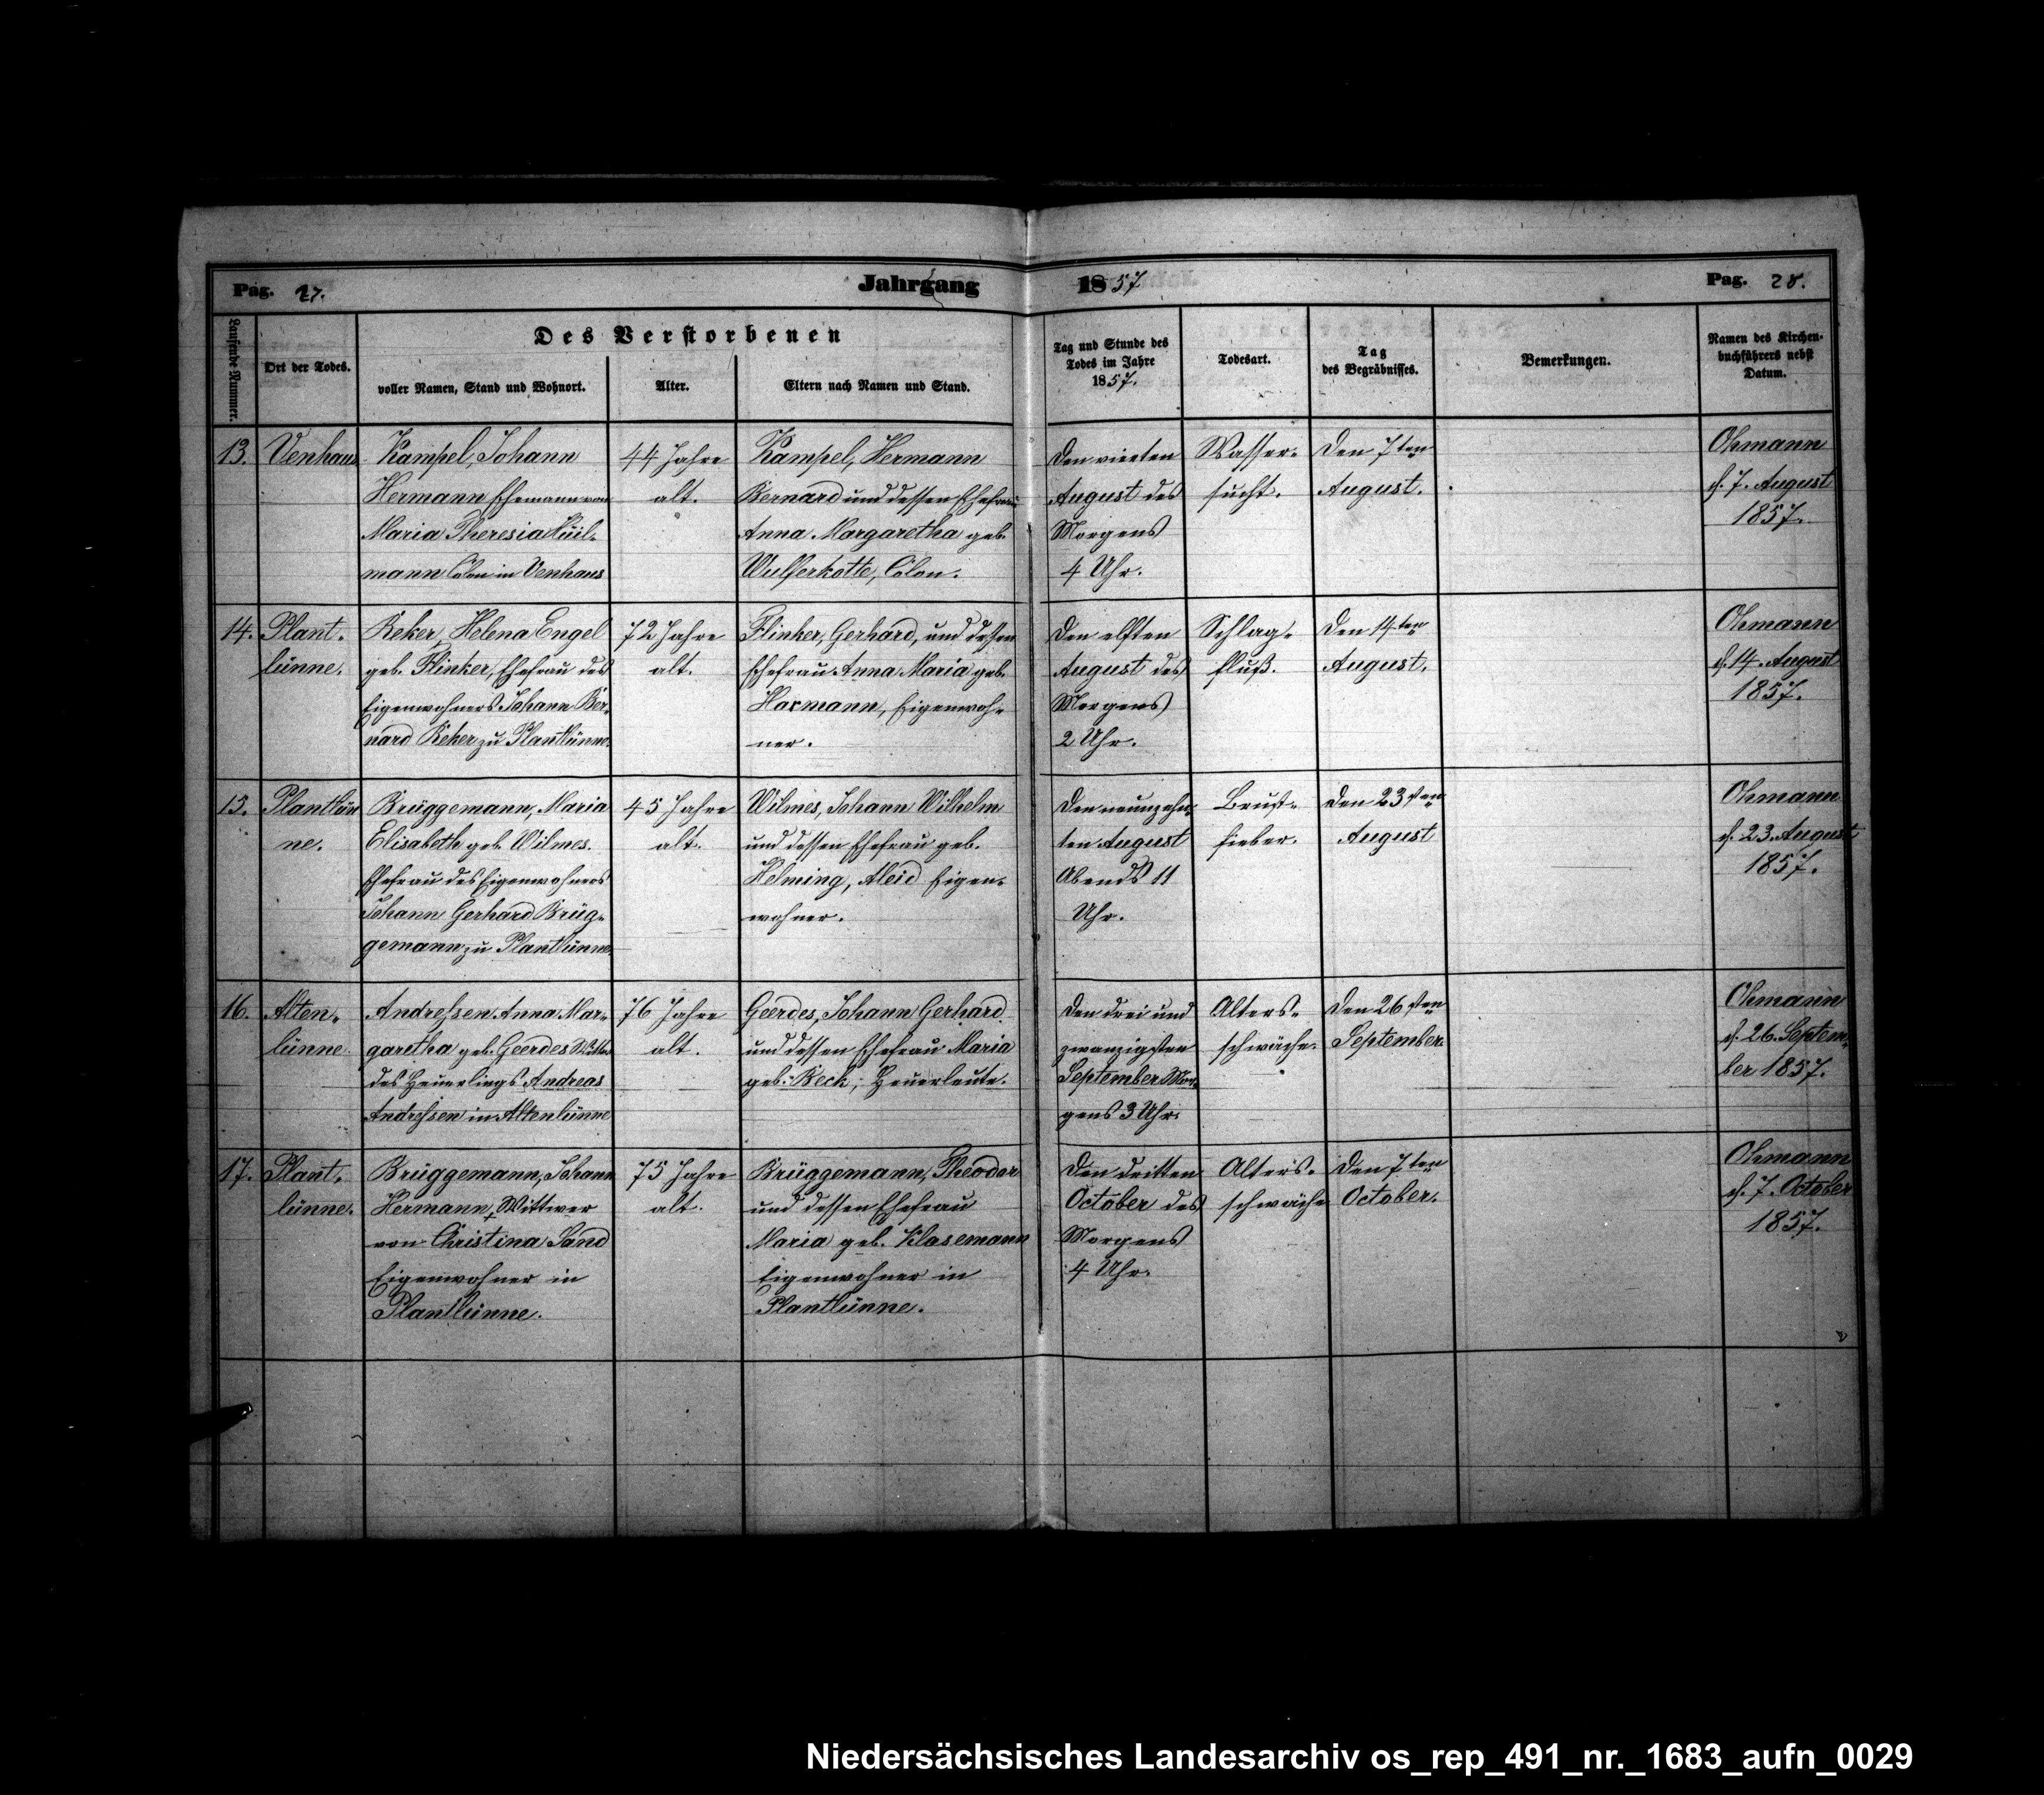 Pag. 27.
Jahrgang 1857
Pag. 28.
Laufende Nummer.
Ort der Todes.
Des Verstorbenen
voller Namen, Stand und Wohnort.
Alter.
Eltern nach Namen und Stand.
Tag und Stunde des
Todes im Jahre
1857.
Todesart.
Tag
des Begräbnisses.
Bemerkungen.
Namen des Kirchen-
buchführers nebst
Datum.
13.
Venhaus
Kampel, Johann
Hermann Ehemann von
Maria Theresia Hüil-
mann Colon in Venhaus
44 Jahre
alt.
Kampel, Hermann
Bernard und dessen Ehefrau
Anna Margaretha geb.
Wulferkotte, Colon.
Den vierten
August des
Morgens
4 Uhr.
Wasser-
sucht.
Den 7ten
August.
Ohmann
d. 7. August
1857.
14.
Plant-
lünne.
Beker, Helena Engel
geb. Flinker, Ehefrau des
Eigenwohners Johann Ber-
nard Beker zu Plantlünne.
72 Jahre
alt.
Flinker, Gerhard, und dessen
Ehefrau Anna Maria geb.
Harmann, Eigenwoh-
ner.
Den elften
August des
Morgens
2 Uhr.
Schlag-
fluß.
Den 14ten
August.
Ohmann
d. 14. August
1857.
15.
Plantlün
ne.
Brüggemann, Maria
Elisabeth geb. Wilmes.
Ehefrau des Eigenwohners
Johann Gerhard Brüg-
gemann zu Plantlünne.
45 Jahre
alt.
Wilmes, Johann Wilhelm
und dessen Ehefrau geb.
Helming, Aleid Eigen-
wohner.
Den neunzehn-
ten August
Abends 11
Uhr.
Brust-
fieber.
Den 23sten
August
Ohmann
d. 23. August
1857.
16.
Alten-
lünne.
Andreßen Anna Mar-
garetha geb. Geerdes Wittwe
des Heuerlings Andreas
Andreßen in Altenlünne
76 Jahre
alt.
Geerdes, Johann Gerhard
und dessen Ehefrau Maria
geb. Beck, Heuerleute.
Den drei und
zwanzigsten
September Mor-
gens 3 Uhr.
Alters-
schwäche.
Den 26sten
September.
Ohmann
d. 26. Septem-
ber 1857.
17.
Plant-
lünne.
Brüggemann, Johann
Hermann, Wittwer
von Christina Sand
Eigenwohner in
Plantlünne.
75 Jahre
alt.
Brüggemann, Theodor
und dessen Ehefrau
Maria geb. Klasemann
Eigenwohner in
Plantlünne.
Den dritten
October des
Morgens
4 Uhr.
Alters-
schwäche
Den 7ten
October.
Ohmann
d. 7. October
1857.
Niedersächsisches Landesarchiv os_rep_491_nr._1683_aufn_0029